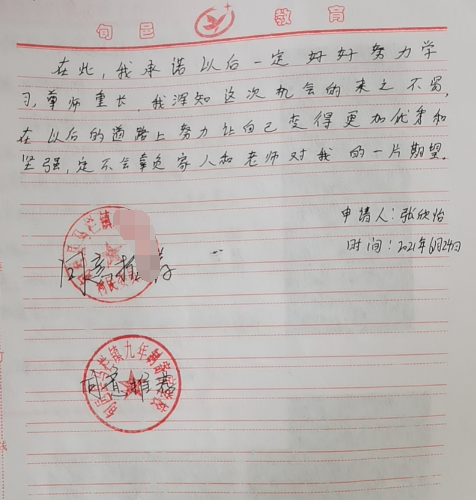 旬邑 教育
在此，我承诺以后一定好好努力学
习，尊师重长，我深知这次机会的来之不易，
在以后的道路上努力让自己变得更加优秀和
坚强，定不会辜负家人和老师对我的一片期望。
申请人：张欣怡
时间：2021年6月24日
同意推荐
栏镇九年制
同意推荐